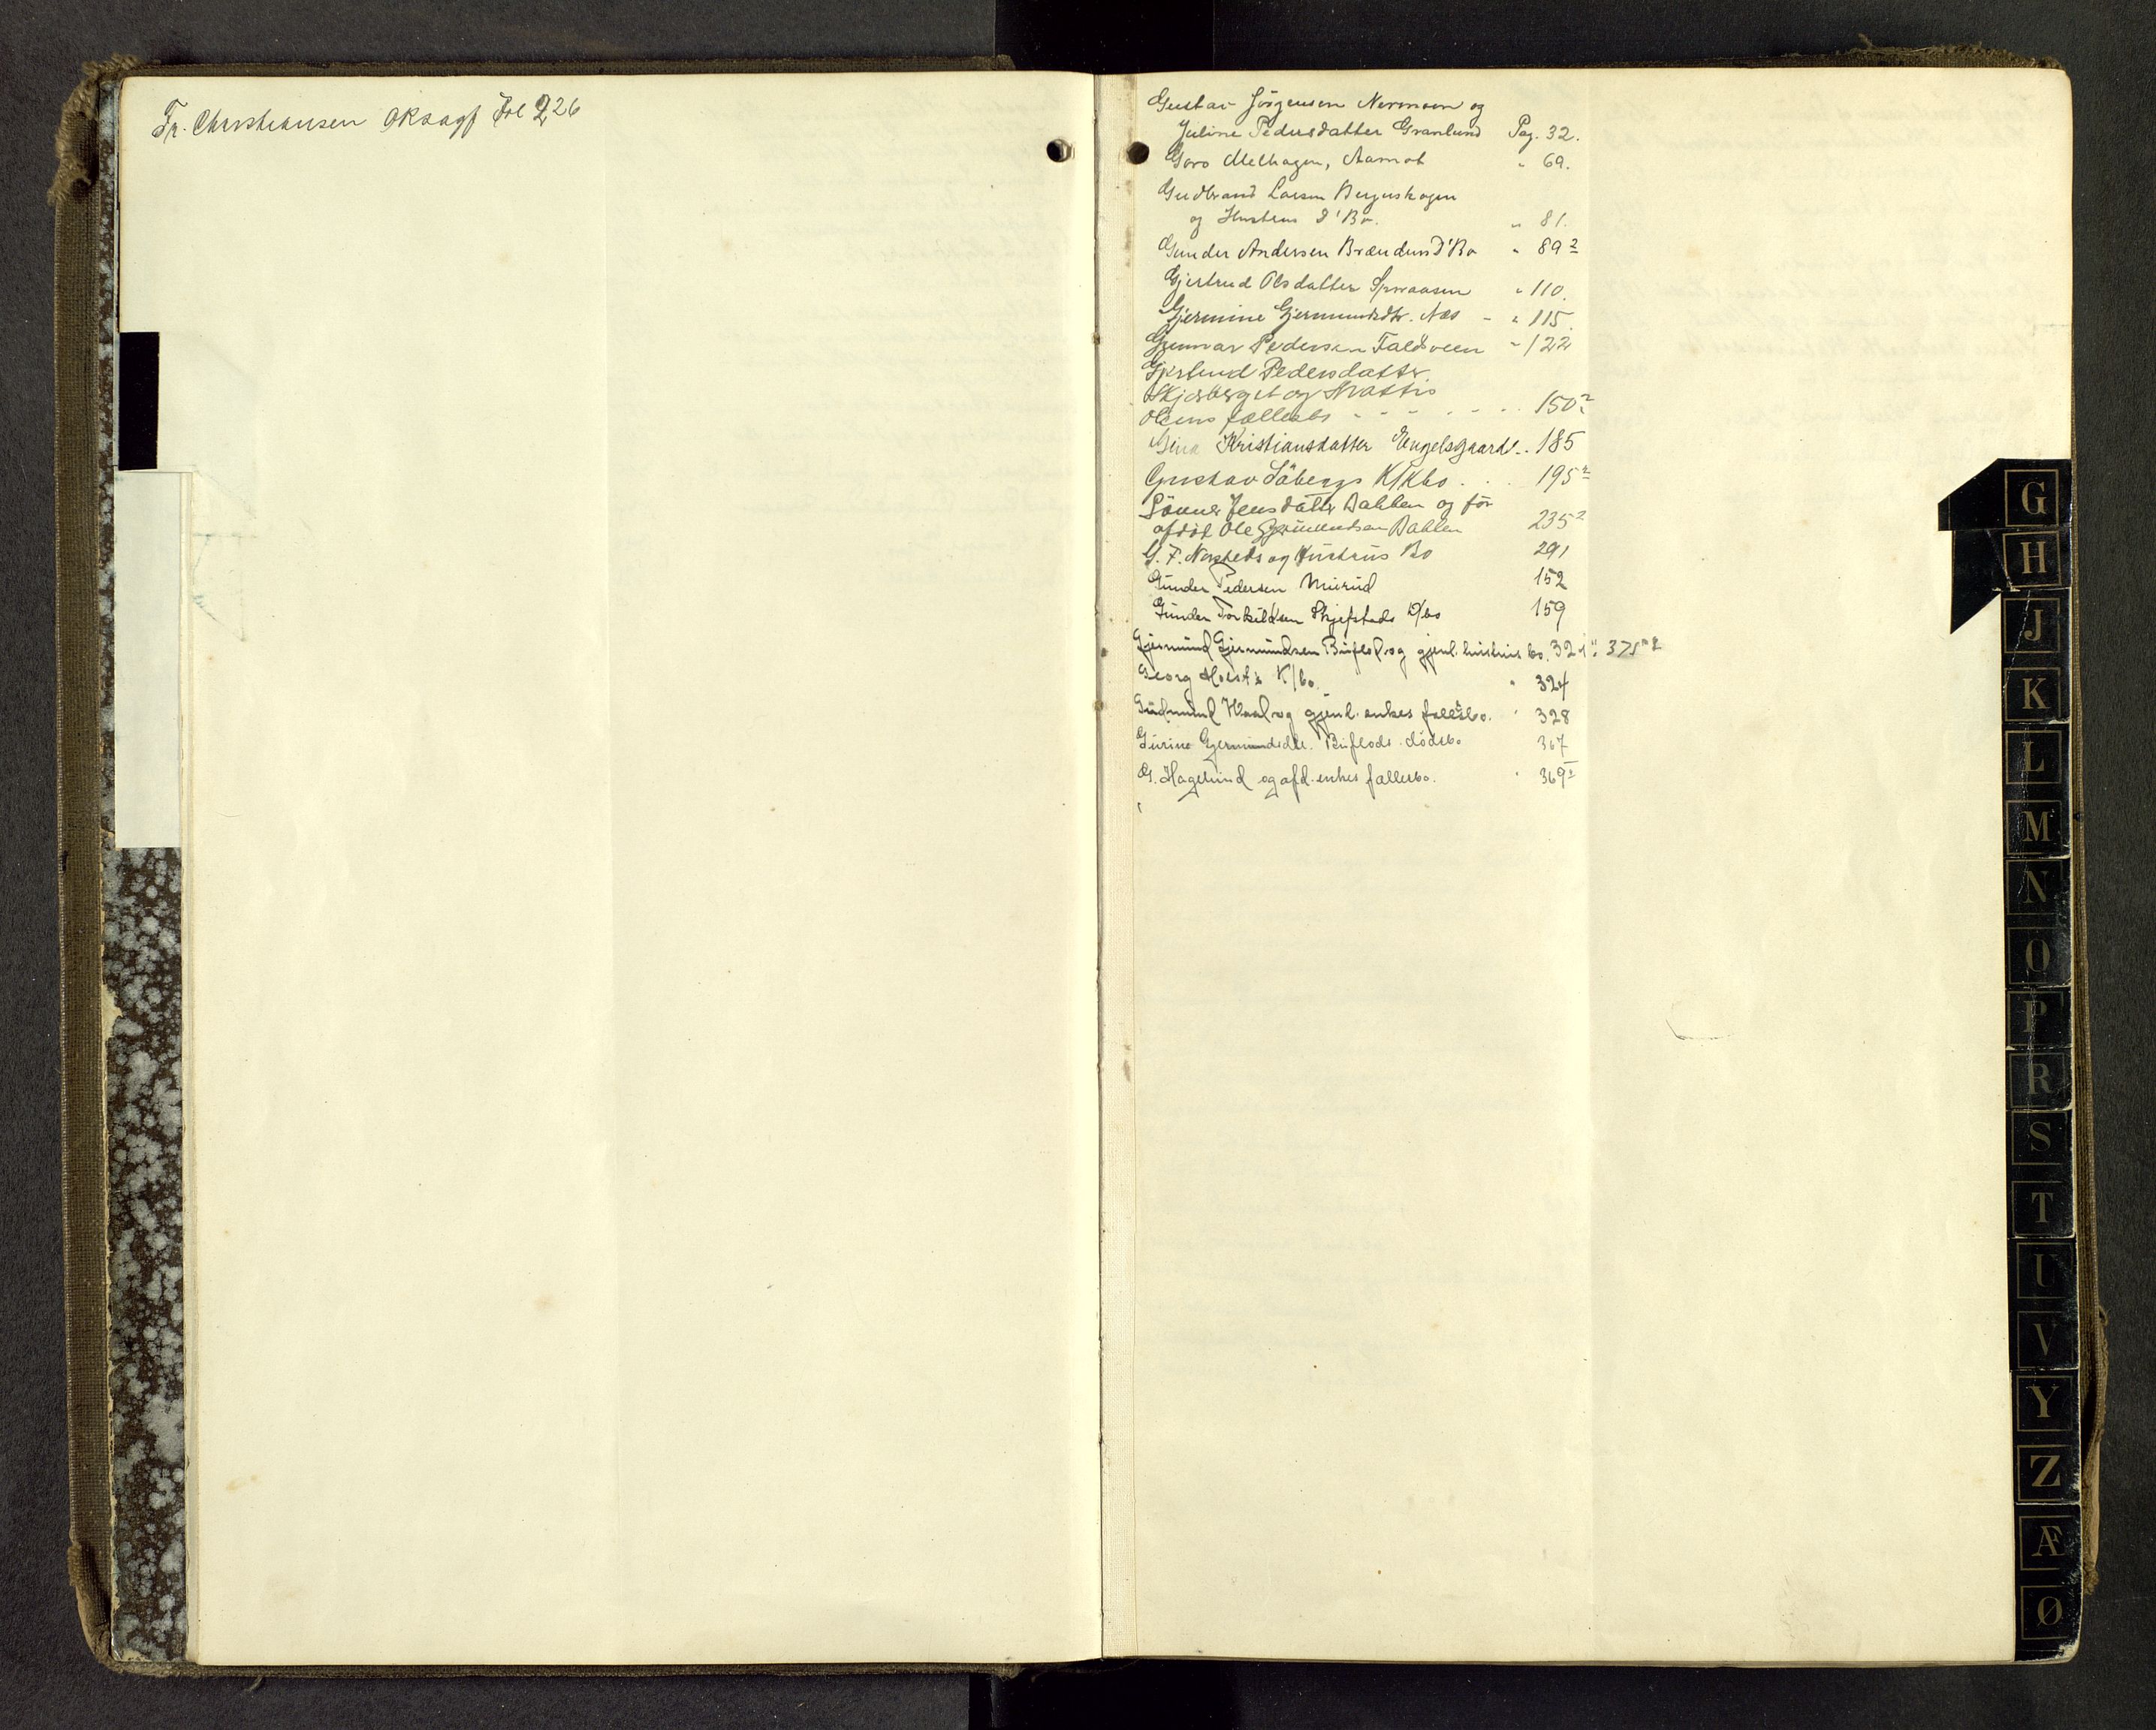 Fr. Christiansen Fol 226
Gustav Jörgensen Nermoen og
Juline Pedersdatter Granlund Pag. 32.
Goro Melhagen, Aamot " 69.
Gudbrand Larsen Bergerhagen
og Hustrus D'Bo. " 81.
Gunder Andersen Brænden D'Bo " 89 2
Gjertrud Olsdatter " 110.
Gjermine Gjermundsdtr. Næs - " 115.
Gunnar Pedersen Faldsveen " 122
Gjertrud Pedersdatter
Skjærberget og Mattis
Olsens fællesbo - - - - - - 150 2
Gina Kristiansdatter Engelsgaard .. 185
Gustav Söbergs K/Kbo . . . 195 2
Jensdatter Bakken og for
afdöf Ole Gjermundsen Bakken 235 2
G. F. og Hustrus Bo 291
Gunder Pedersen Murud 152
Gunder Torkildsen Skjefstads D/bo 159
Gjermund Gjermundsen Buflod og gjenl. hustrus bo. 321 " 375 2
Georg Holst's K/bo. " 324
Gudmund og gjenl. enkes fællesbo. " 328
Gurine Gjermundsdtr. Buflods dödsbo 367
G. Hagelund og afd. enkes fællesbo. " 369 2
G
H
J
K
L
M
N
O
P
R
S
T
U
V
Y
Z
Æ
Ø